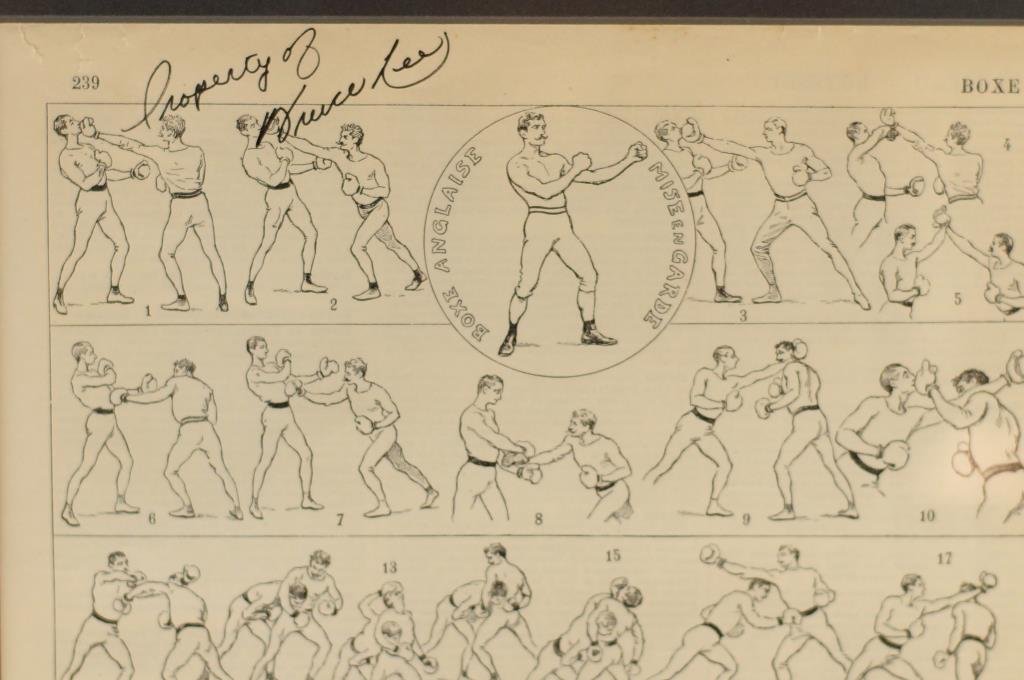 Property of
Bruce Lee
239
BOXE
BOXE ANGLAISE
MISE EN GARDE
1
2
3
4
5
6
7
8
9
10
13
15
17